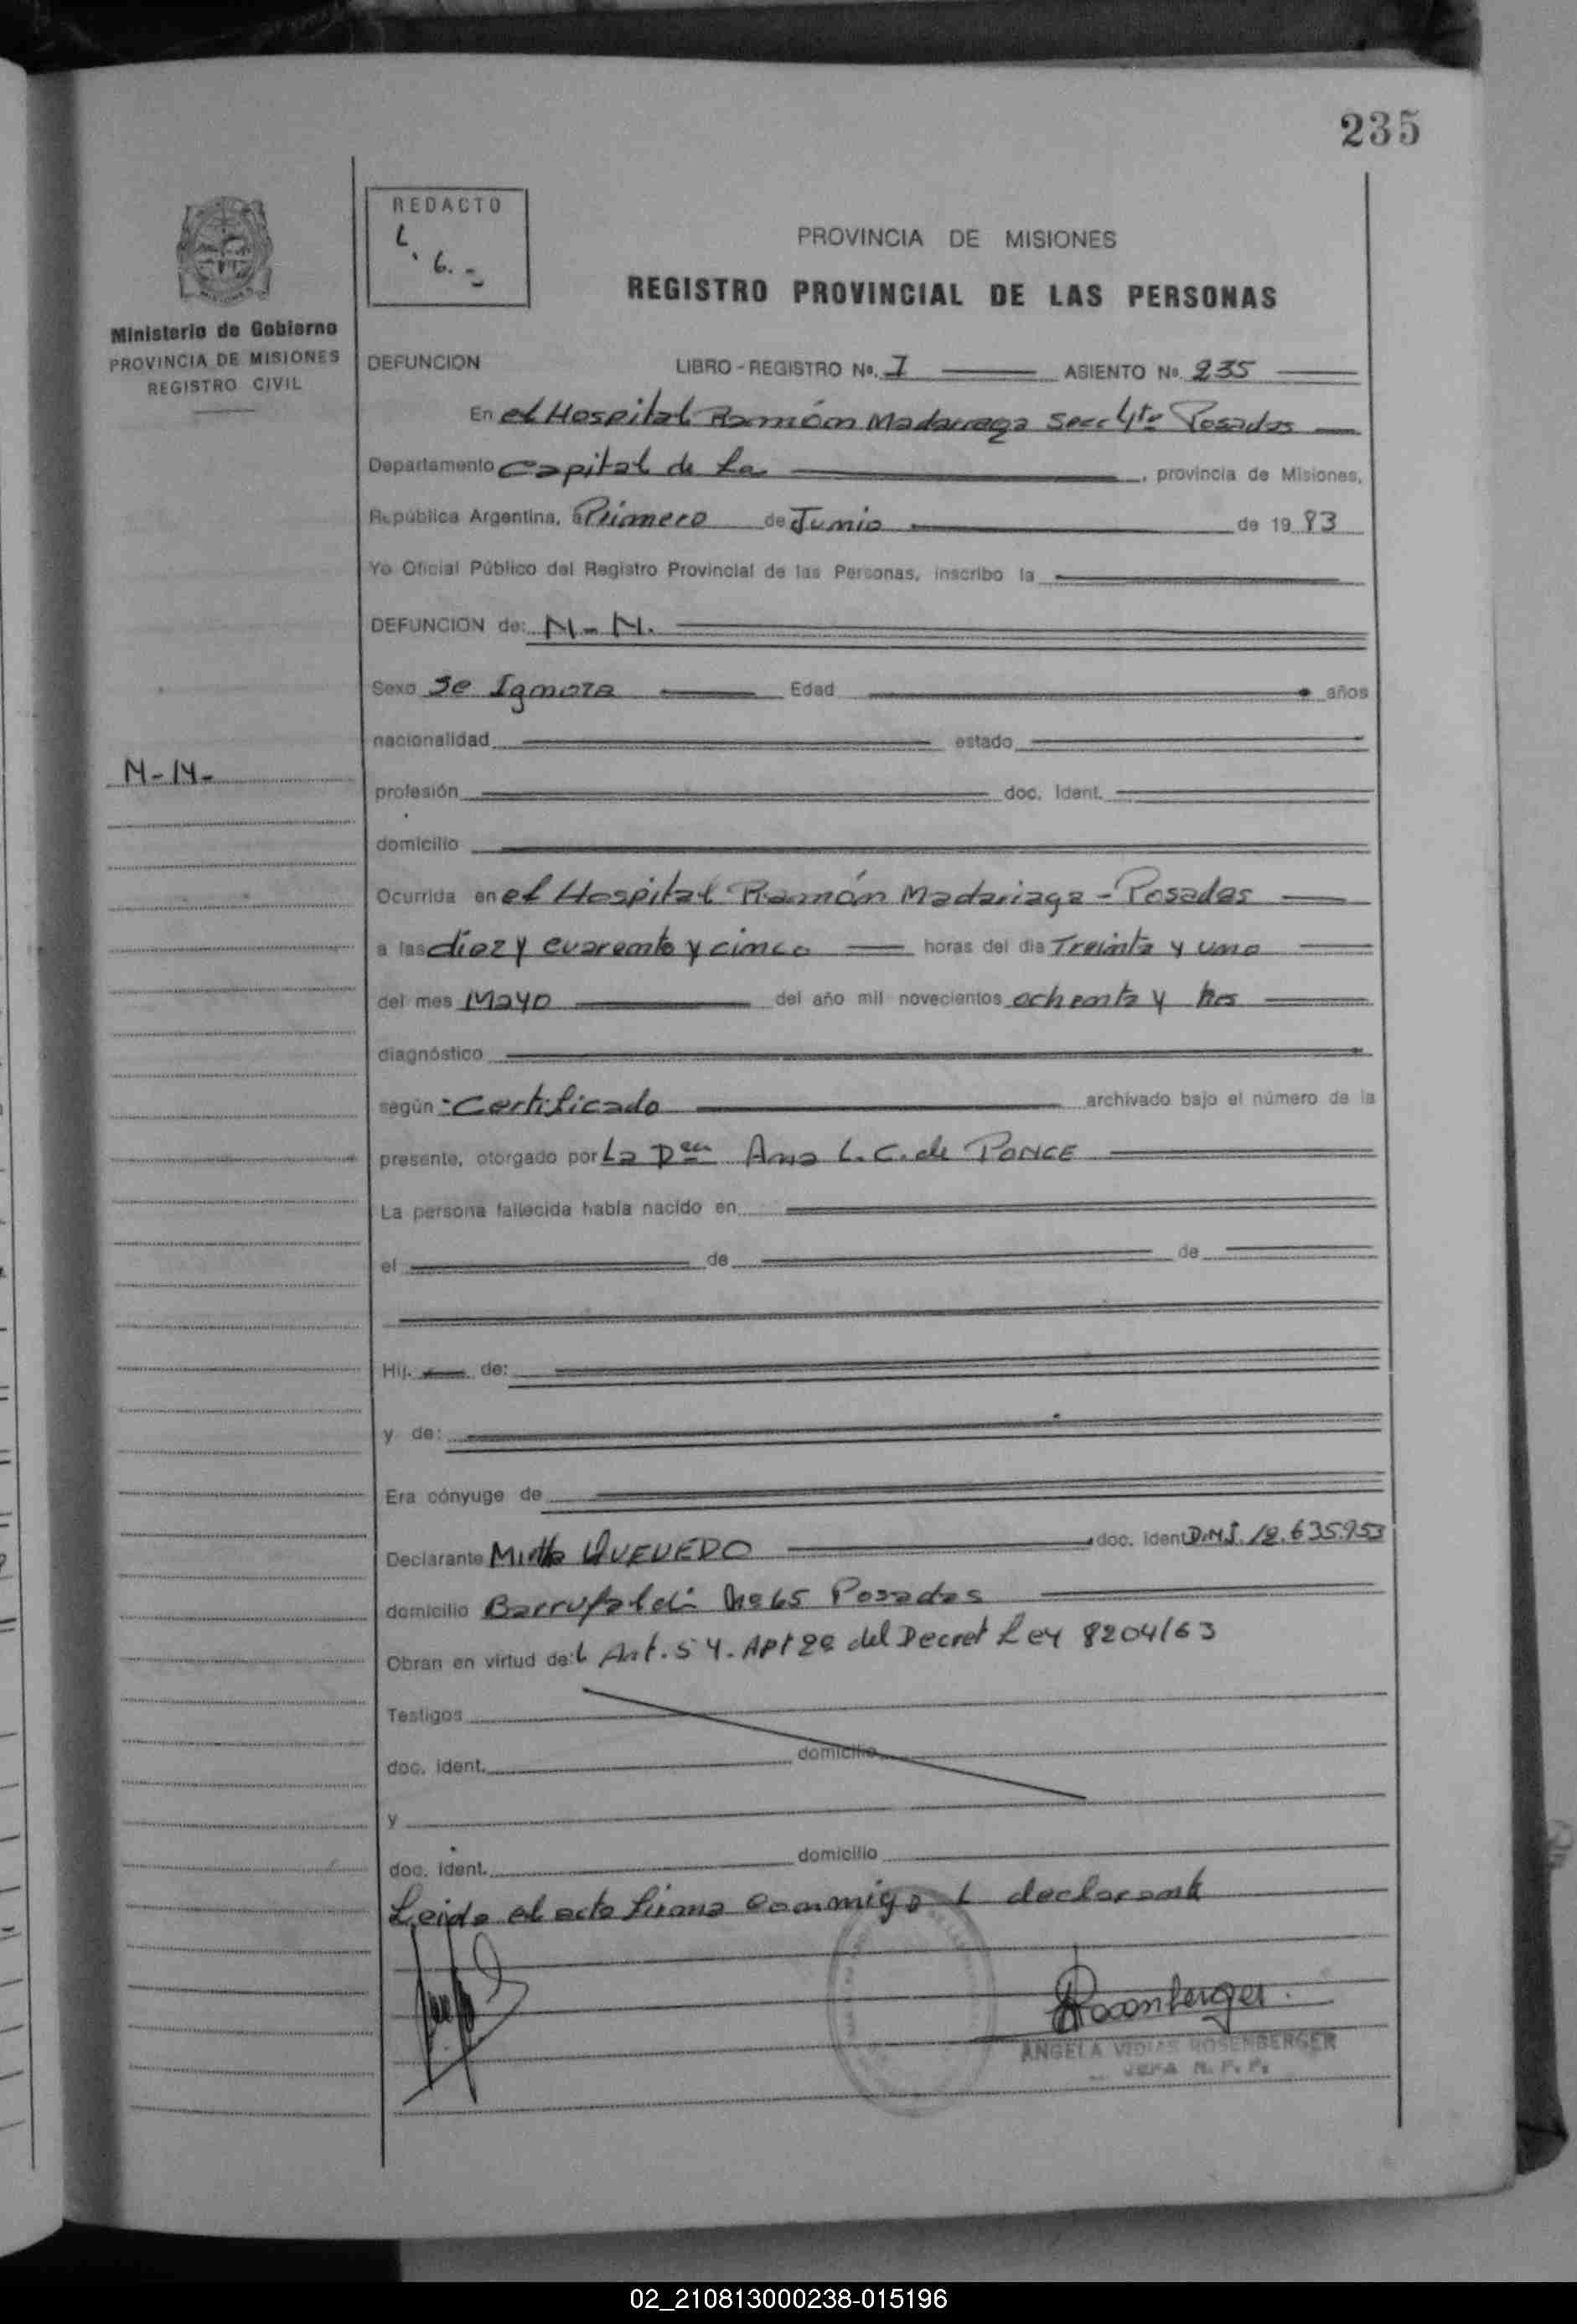 235
REDACTO
L
6.-
PROVINCIA DE MISIONES
REGISTRO PROVINCIAL DE LAS PERSONAS
Ministerio de Gobierno
PROVINCIA DE MISIONES
REGISTRO CIVIL
DEFUNCION LIBRO - REGISTRO No. I ASIENTO No. 235
En el Hospital Ramón Madarraga Secc 4ta Posadas
Departamento Capital de La , provincia de Misiones,
República Argentina, a Primero de Junio de 19 83
Yo Oficial Público del Registro Provincial de las Personas, inscribo la
DEFUNCION de: N-N.
Sexo Se Ignora Edad años
nacionalidad estado
N-N-
profesión doc. Ident.
domicilio
Ocurrida en el Hospital Ramón Madariaga - Posadas
a las diez y cuarenta y cinco horas del día Treinta y uno
del mes Mayo del año mil novecientos ochenta y tres
diagnóstico
según Certificado archivado bajo el número de la
presente, otorgado por La Dra Ana L. C. de PONCE
La persona fallecida había nacido en
el de de
Hij. de:
y de:
Era cónyuge de
Declarante Mirtha QUEVEDO doc. ident D.N.I. 12.635.953
domicilio Barrufaldi No 65 Posadas
Obran en virtud de:l Art. 54. Apt 2o del Decret Ley 8204/63
Testigos
doc. ident. domicilio
y
doc. ident. domicilio
Leida el acta firma conmigo l declarant
Rosenberger
ANGELA VIDIAS ROSENBERGER
JEFA R. P. P.
02_210813000238-015196